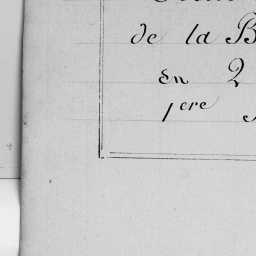 de la B
En 2
1ere